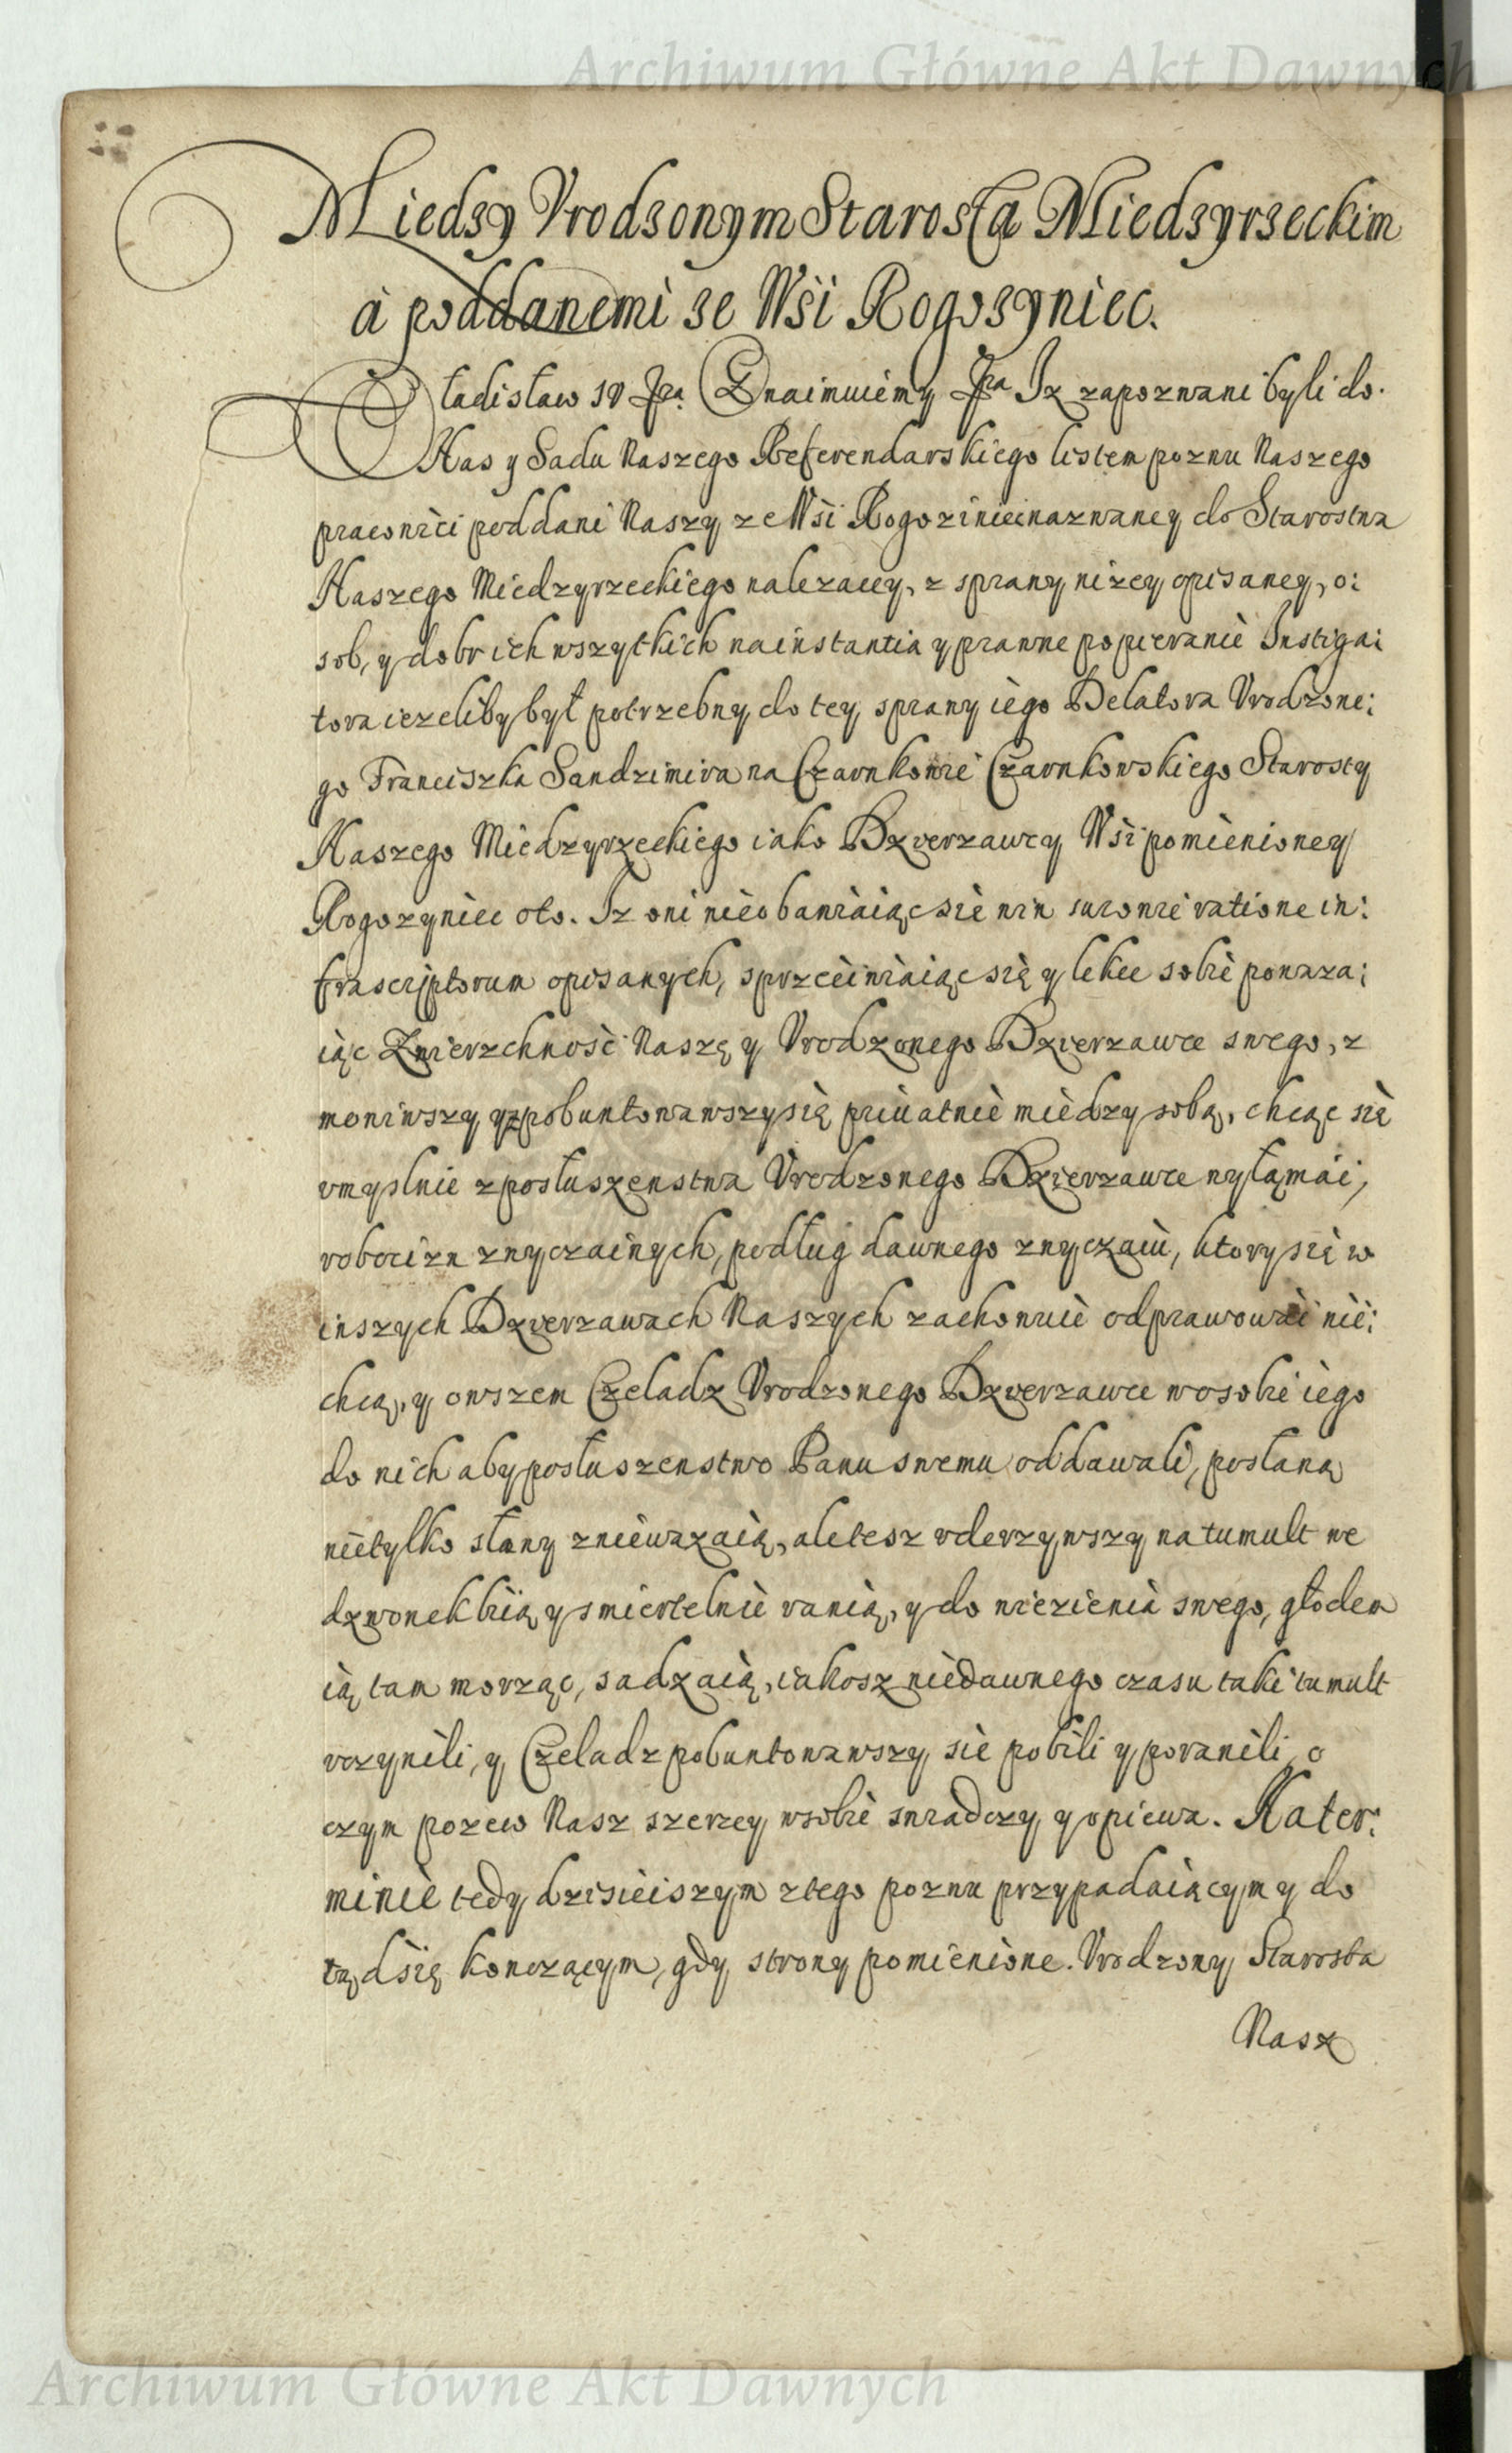 Archiwum Główne Akt Dawnych
Miedzy Vrodzonym Starostą Miedzyrzeckim
à poddanemi ze Wsi Rogozyniec.
Władisław IV Etca. Oznaimuiemy Etca Iz zapozwani byli do
Nas y Sadu Naszego Referendarskiego listem pozwu Naszego
pracowici poddani Naszy ze Wsi Rogoziniec nazwaney do Starostwa
Naszego Miedzyrzeckiego nalezacey, z sprawy nizey opisaney, o:
sob, y dobr ich wszytkich na instantia y prawne popieranie Instiga:
tora iezeliby był potrzebny do tey sprawy iego Delatora Vrodzone:
go Franciszka Sandziwira na Czarnkowie Czarnkowskiego Starosty
Naszego Miedzyrzeckiego iako Dzierzawcy Wsi pomienioney
Rogozyniec oto. Iz oni nieobawiaiąc sie win surowie ratione in:
frascriptorum opisanych, sprzeciwiaiąc się y lekce sobie powaza:
iąc Zwierzchność Naszę y Vrodzonego Dzierzawce swego, z
mowiwszy y zpobuntowawszy się priuatnie miedzy sobą, chcąc się
vmyslnie z posłuszenstwa Vrodzonego Dzierzawce wyłąmác,
robocizn zwyczainych, podług dawnego zwyczaiu, ktory się w
inszych Dzierzawach Naszych zachowuie odprawować nie:
chcą, y owszem Czeladz Vrodzonego Dzierzawce w osobie iego
do nich aby posłuszenstwo Panu swemu oddawali, posłaną
nietylko słowy zniewazaią, ale tesz vderzywszy na tumult we
dzwonek biią y smiertelnie ranią, y do wiezienia swego, głodem
ią tam morząc, sadzaią, iakosz niedawnego czasu taki tumult
vczynili, y Czeladz pobuntowawszy sie pobili y poranili, o
czym pozew Nasz szerzey w sobie swiadczy y opiewa. Na ter:
minie tedy dzisieiszym z tego pozwu przypadaiącym y do
tąd się konczącym, gdy strony pomienione. Vrodzony Starosta
Nasz
Archiwum Główne Akt Dawnych